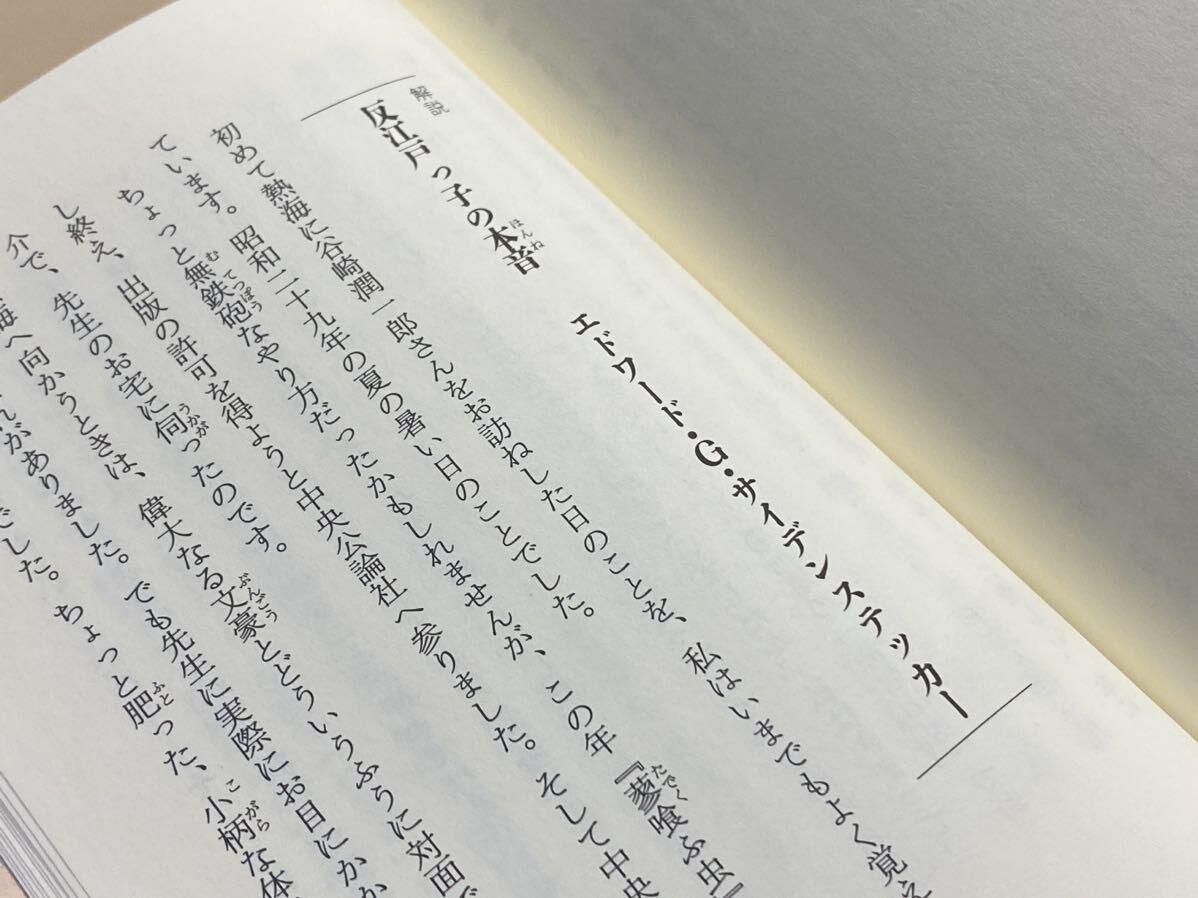 解説
反江戸っ子の本音 エドワード・G・サイデンステッカー
ほんね
初めて熱海に谷崎潤一郎さんをお訪ねした日のことを、私はいまでもよく覚え
ています。昭和二十九年の夏の暑い日のことでした。
ちょっと無鉄砲なやり方だったかもしれませんが、この年『蓼喰ふ虫』
むてっぽう たでく
し終え、出版の許可を得ようと中央公論社へ参りました。そして中央
介で、先生のお宅に伺ったのです。
うかが
海へ向かうときは、偉大なる文豪とどういうふうに対面で
ぶんごう
れがありました。でも先生に実際にお目にかか
でした。ちょっと肥った、小柄な体
ふと こがら